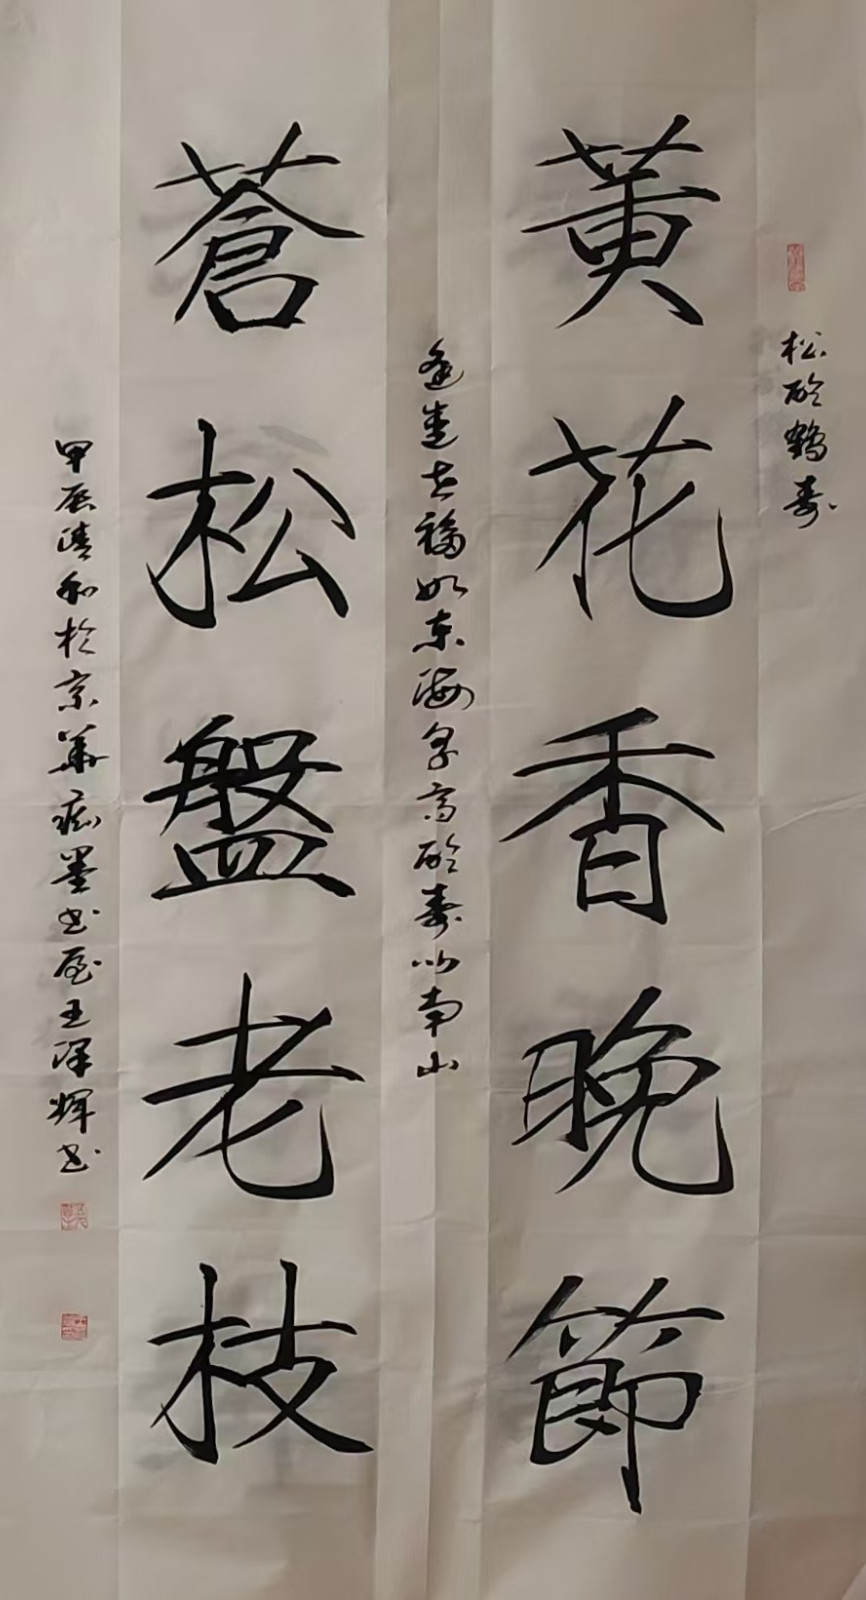 松龄鹤寿
黄花香晚節
福如东海年高龄寿比南山
蒼松盤老枝
甲辰清和於京華痴墨书屋王泽辉书